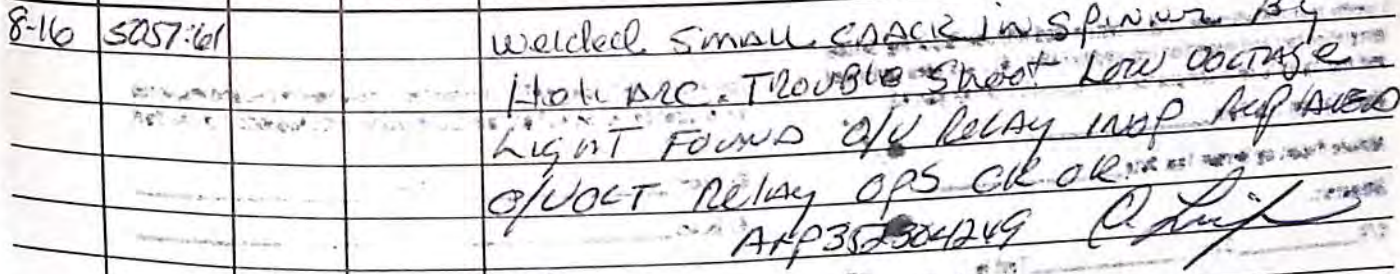 8-16 5057:61 Welded small crack in spinner By
Heli Arc. Trouble Shoot Low Voltage
Light Found O/V Relay INOP Replaced
O/VOLT Relay OPS CK OK
A&P352304249